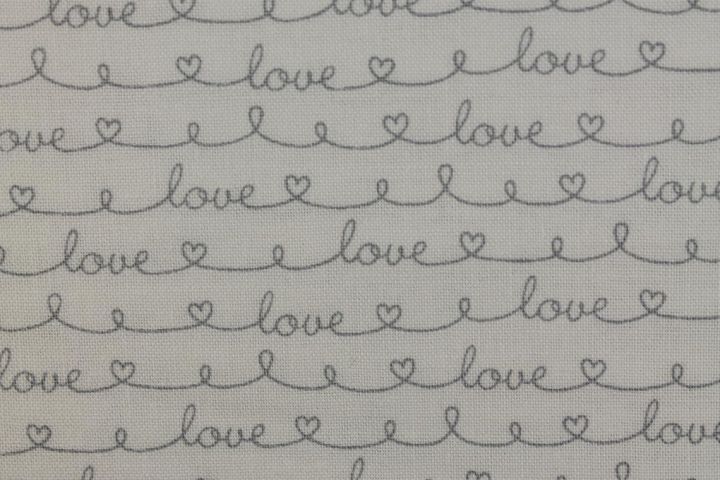 love love
love love
ove love
love lov
love love
love love
love love
love lov